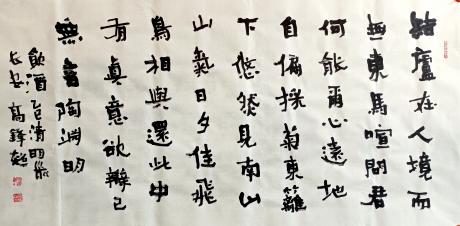 結廬在人境而
無車馬喧問君
何能爾心遠地
自偏採菊東籬
下悠然見南山
山氣日夕佳飛
鳥相與還此中
有真意欲辯已
無言陶渊明
飲酒 乙巳清明
长安 高鋒